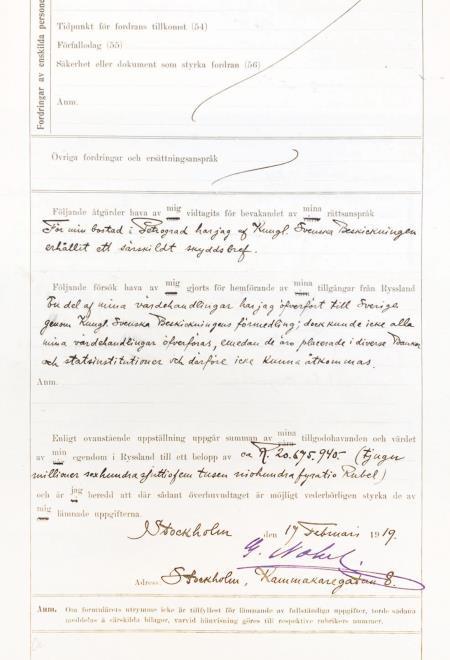 Fordringar av enskilda persone
Tidpunkt för fordrans tillkomst (54)
Förfallodag (55)
Säkerhet eller dokument som styrka fordran (56)
Anm.
Övriga fordringar och ersättningsanspråk
Följande åtgärder hava av mig vidtagits för bevakandet av mina rättsanspråk
För min bostad i Petrograd har jag af Kungl. Svenska Beskickningen
erhållet ett särskildt skyddsbref.
Följande försök hava av mig gjorts för hemförande av mina tillgångar från Ryssland
En del af mina värdehandlingar har jag öfverfört till Sverige
genom Kungl. Svenska Beskickningens förmedling; dock kunde icke alla
mina värdehandlingar öfverföras, emedan de äro placerade i diverse Banker
och statsinstitutioner och därföre icke kunna åtkommas.
Anm.
Enligt ovanstående uppställning uppgår summan av mina tillgodohavanden och värdet
av min egendom i Ryssland till ett belopp av ca R. 20.675.940.- (tjugu
millioner sexhundrasjuttiofem tusen niohundrafyratio Rubel)
och är jag beredd att där sådant överhuvudtaget är möjligt vederbörligen styrka de av
mig lämnade uppgifterna.
Stockholm den 17 Februari 1919.
G. Nobel
Adress Stockholm, Kammakaregatan 8.
Anm. Om formulärets utrymme icke är tillfyllest för lämnande av fullständiga uppgifter, torde sådana
meddelas å särskilda bilagor, varvid hänvisning göres till respektive rubrikers nummer.